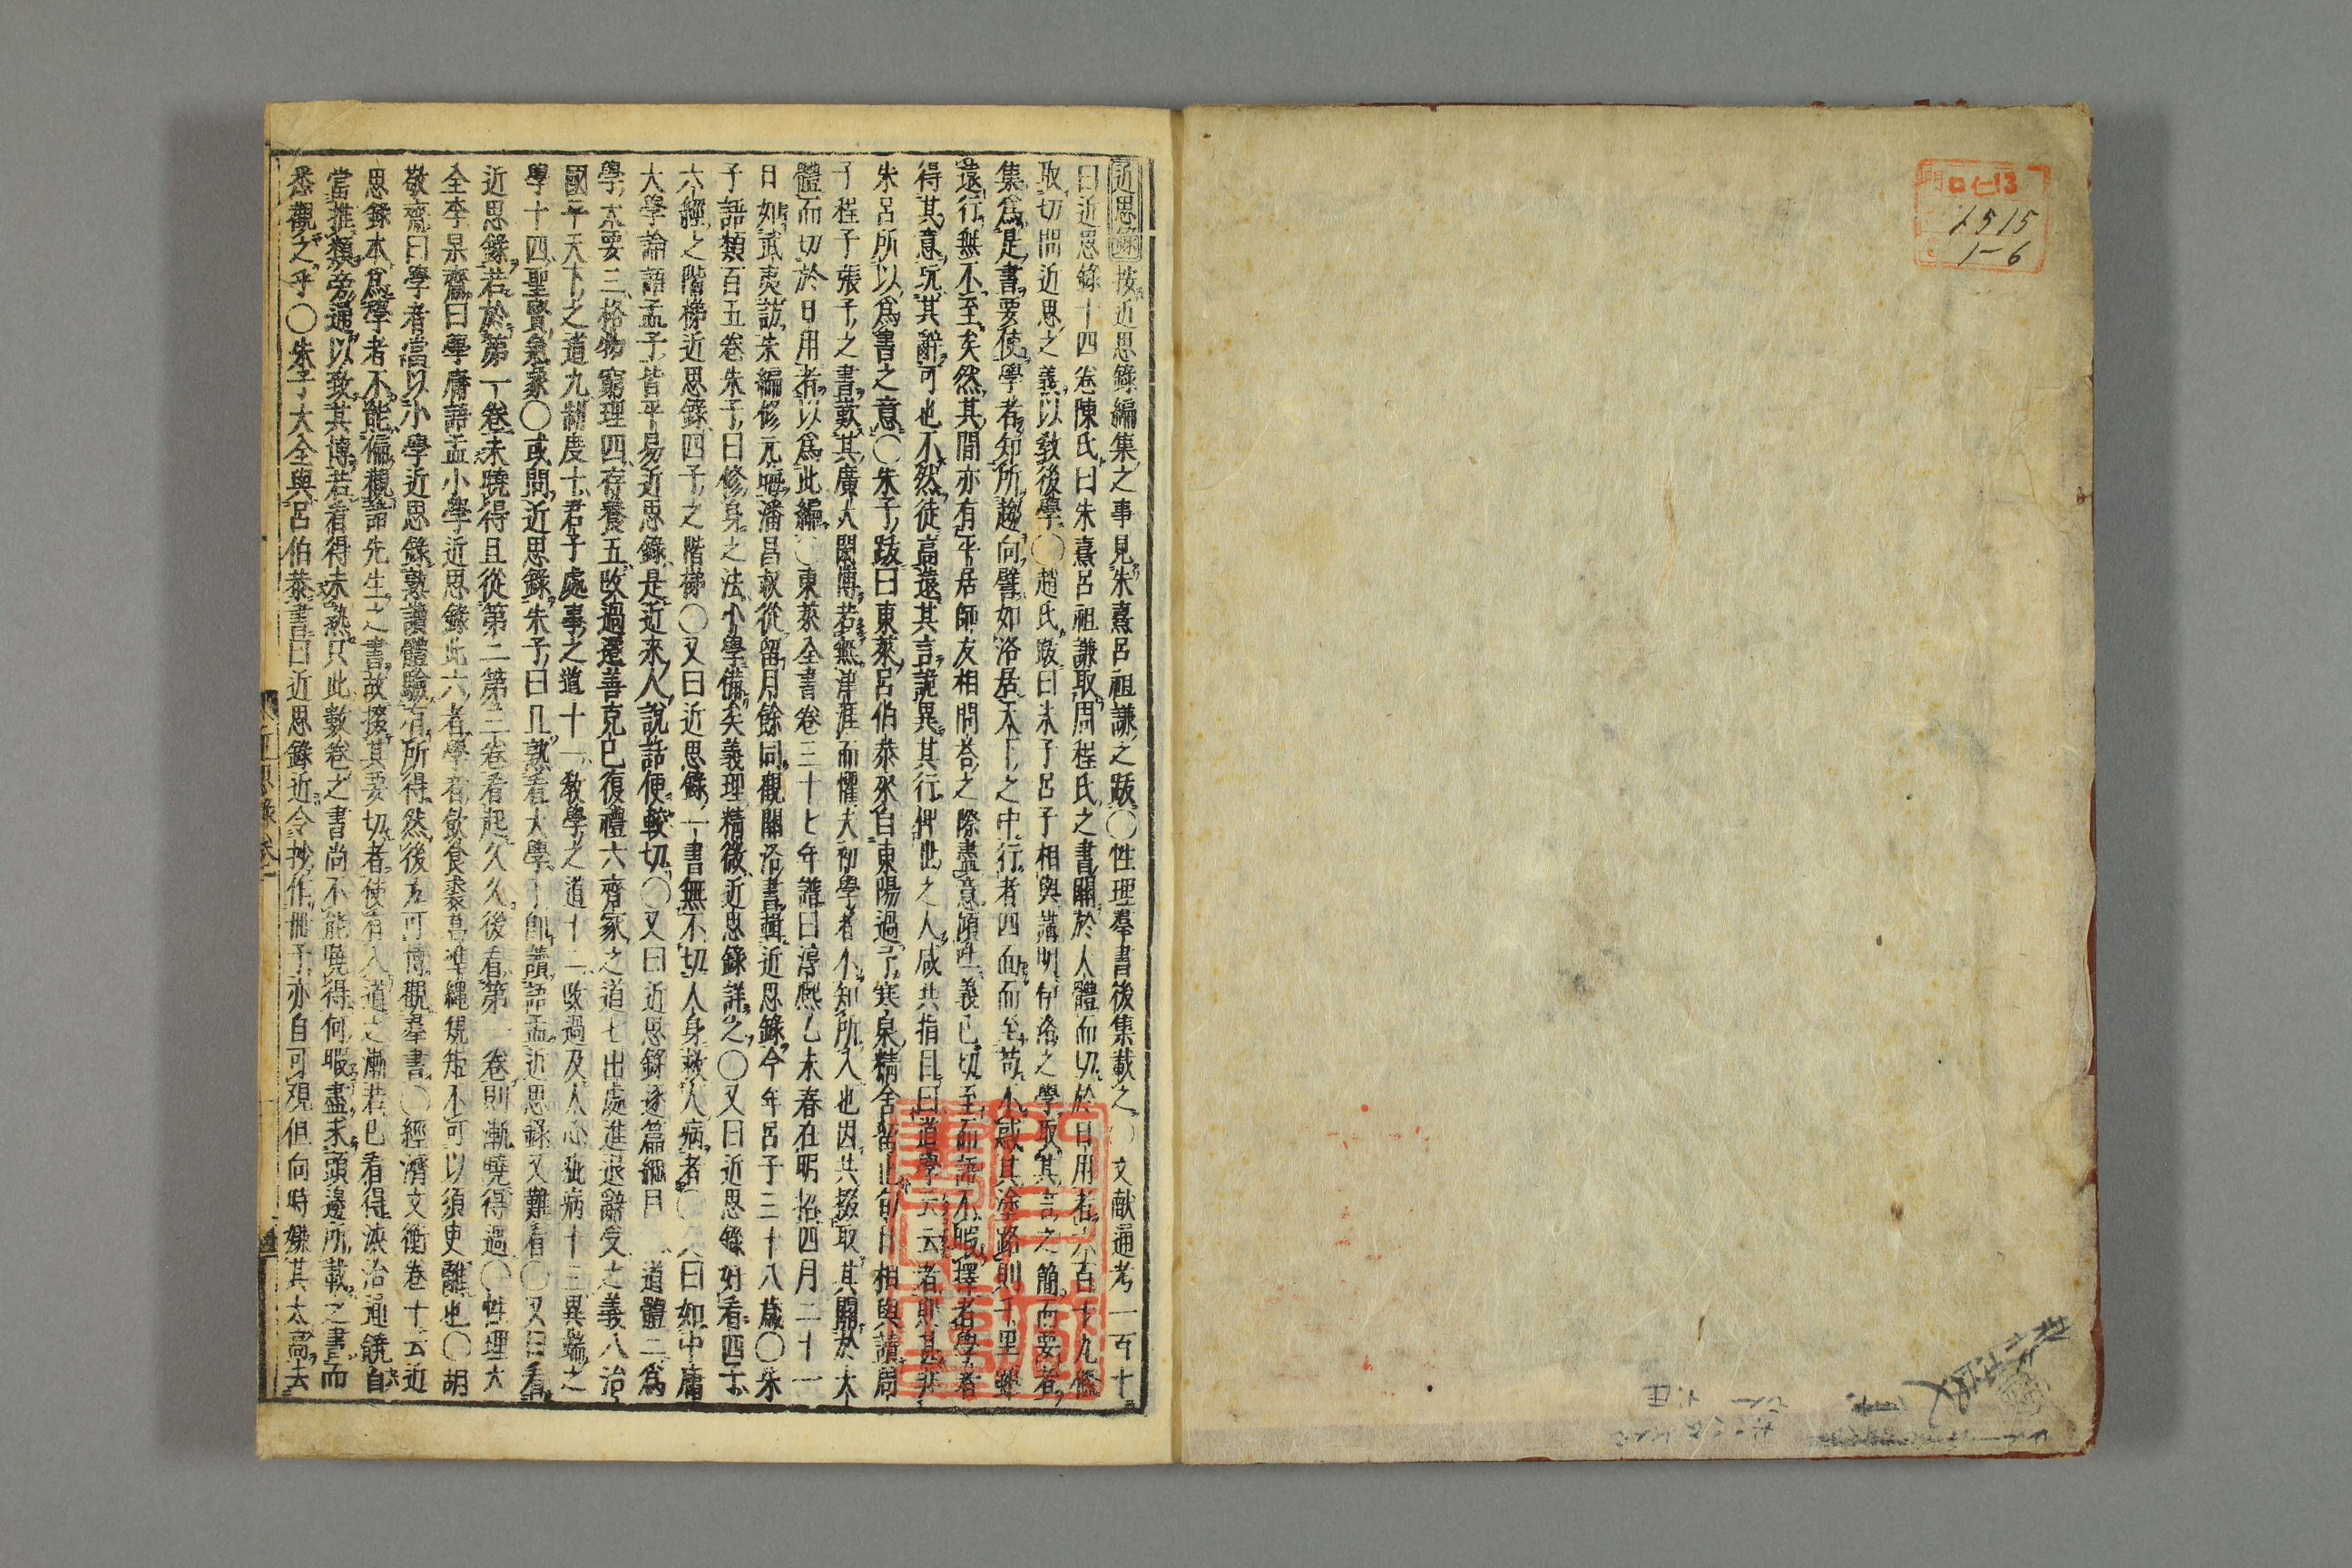 口仁13
1515
1-6
近思錄 按近思錄編集之事見朱熹呂祖謙之跋○性理羣書後集載之○文献通考一百十
曰近思錄十四卷陳氏曰朱熹呂祖謙取周程氏之書關於人體而切於日用者六百十九條
取切問近思之義以敎後學○趙氏跋曰朱子呂子相與講明伊洛之學取其言之簡而要者
集爲是書要使學者知所趨向譬如洛居天下之中行者四面而至苟不惑其塗路則千里雖
遠行無不至矣然其間亦有平居師友相問荅之際盡意頃一義已切至而語不暇擇者學者
得其意玩其辭可也不然徒高遠其言詭異其行俾世之人咸共指目曰道學云云者
朱呂所以爲書之意○朱子跋曰東萊呂伯恭來自東陽過予寒泉精舍留止旬日相與讀周
子程子張子之書歎其廣大閎博若無津涯而懼夫初學者不知所入也因共掇取其關於大
體而切於日用者以爲此編○東萊全書卷三十七年譜曰淳熙乙未春在明招四月二十一
日如武夷訪朱編修元晦潘昌叔從留月餘同觀關洛書輯近思錄今年呂子三十八歲○朱
子語類百五卷朱子曰修身之法小學備矣義理精微近思錄詳之○又曰近思錄好看四子
六經之階梯近思錄四子之階梯○又曰近思錄一書無不切人身救人病者○又曰如中庸
大學論語孟子皆平易近思錄是近來人說話便較切○又曰近思錄逐篇綱目一道體二爲
學大要三格物窮理四存養五改過遷善克己復禮六齊家之道七出處進退辭受之義八治
國平天下之道九制度十君子處事之道十一敎學之道十二改過及人心疵病十三異端之
學十四聖賢氣象○或問近思錄朱子曰且熟看大學了卽讀語孟近思錄又難看○又曰看
近思錄若於第一卷未曉得且從第二第三卷看起久久後看第一卷則漸曉得過○性理大
全李杲齋曰學庸語孟小學近思錄此六者學者飮食裘葛準繩規矩不可以須臾離也○胡
敬齋曰學者當以小學近思錄熟讀體驗有所得然後方可博觀羣書○經濟文衡卷十云近
思錄本爲學者不能徧觀諸先生之書故掇其要切者使有入道之漸若已看得浹洽通曉自
當推類旁通以致其博若看得未熟只此數卷之書尚不能曉得何暇盡求頭邊所載之書而
悉觀之乎○朱子大全與呂伯恭書曰近思錄近令抄作冊子亦自可觀但向時嫌其太高去
近思錄卷一